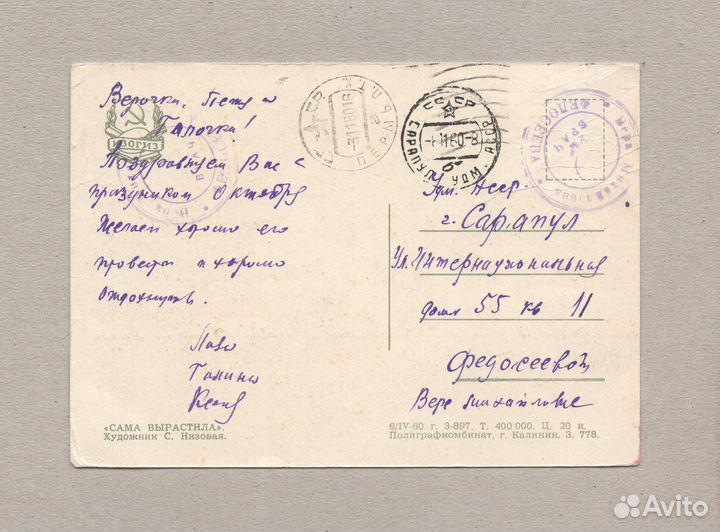 Верочка, Петя и
Галочка!
Поздравляем Вас с
праздником Октября
Желаем хорошо его
провести и хорошо
отдохнуть.
Галина
ИЗОГИЗ
«САМА ВЫРАСТИЛА».
Художник С. Низовая.
СССР
САРАПУЛ УДМ. АССР
-41160-8
-31116016
Вера Михайловна
ФЕДОСЕЕВА
ВРАЧ
Удм. Асср.
г. Сарапул
ул. Интернациональная
дом 55 кв 11
Федосеевой
Вере Михайловне
6/IV-60 г. З-897. Т. 400 000. Ц. 20 к.
Полиграфкомбинат, г. Калинин. З. 778.
Avito